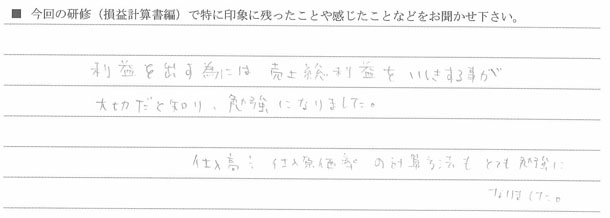 ■ 今回の研修（損益計算書編）で特に印象に残ったことや感じたことなどをお聞かせ下さい。
利益を出す為には 売上総利益を いしきする事が
大切だと知り、勉強になりました。
仕入高: 仕入原価率 の計算方法も とても 勉強に
なりました。